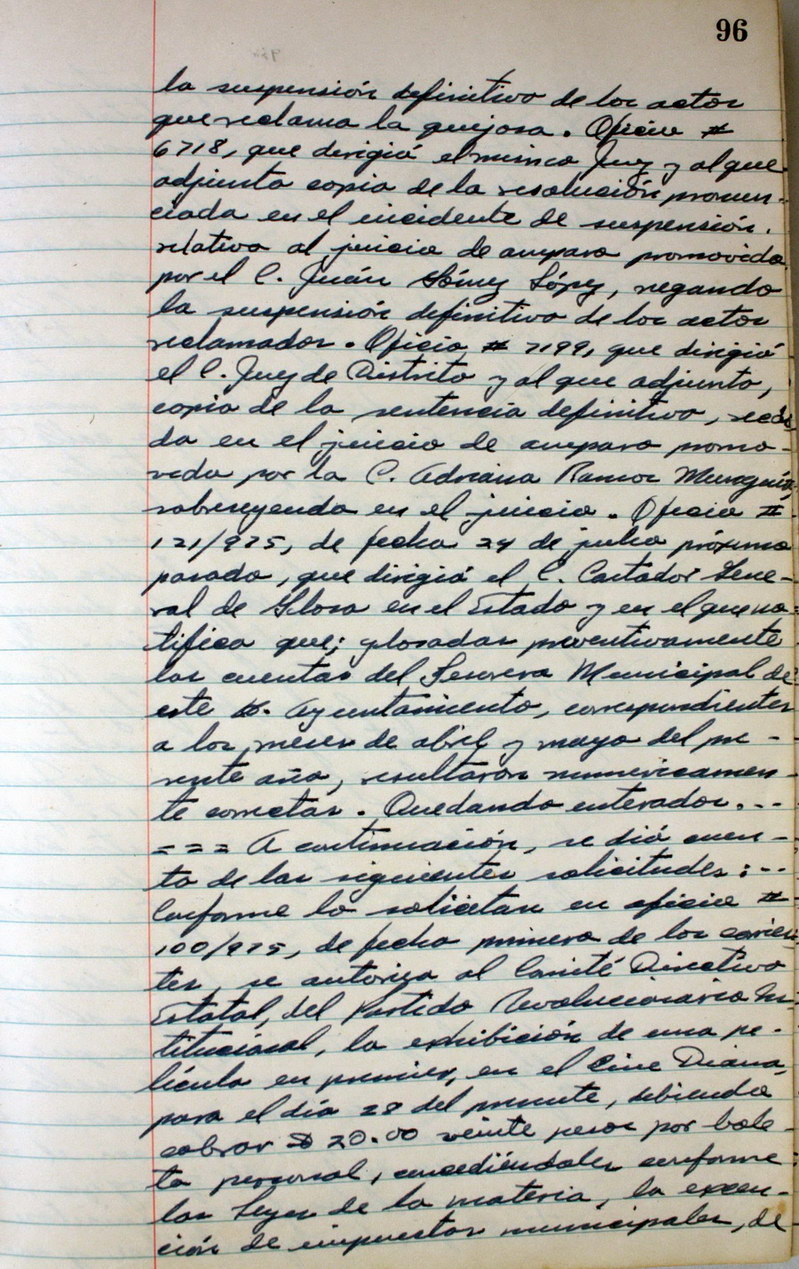 96
la suspensión definitiva de los actos
que reclama la quejosa. Oficio #
6718, que dirigió el mismo Juez y al que
adjunta copia de la resolución pronun-
ciada en el incidente de suspensión.
relativo al juicio de amparo promovido
por el C. Juán Gómez López, negando
la suspensión definitiva de los actos
reclamados. Oficio # 7199, que dirigió
el C. Juez de Distrito y al que adjunta,
copia de la sentencia definitiva, recaí
da en el juicio de amparo promo-
vido por la C. Adriana Ramos Munguía,
sobreseyendo en el juicio. Oficio #
121/975, de fecha 24 de julio próximo
pasado, que dirigió el C. Contador Gene-
ral de Glosa en el Estado y en el que no-
tifica que; glosadas preventivamente
las cuentas del Tesorero Municipal de
este H. Ayuntamiento, correspondientes
a los meses de abril y mayo del pre-
sente año, resultaron numéricamen-
te correctas. Quedando enterados.--
=== A continuación, se dió cuen-
ta de las siguientes solicitudes:--
Conforme lo solicitan en oficio #
100/975, de fecha primero de los corrien-
tes, se autoriza al Comité Directivo
Estatal, del Partido Revolucionario Ins
titucional, la exhibición de una pe-
lícula en premier, en el Cine Diana,
para el día 28 del presente, debiendo
cobrar $ 20.00 veinte pesos por bole-
to personal, concediéndoles conforme
las Leyes de la materia, la exen-
ción de impuestos municipales, de